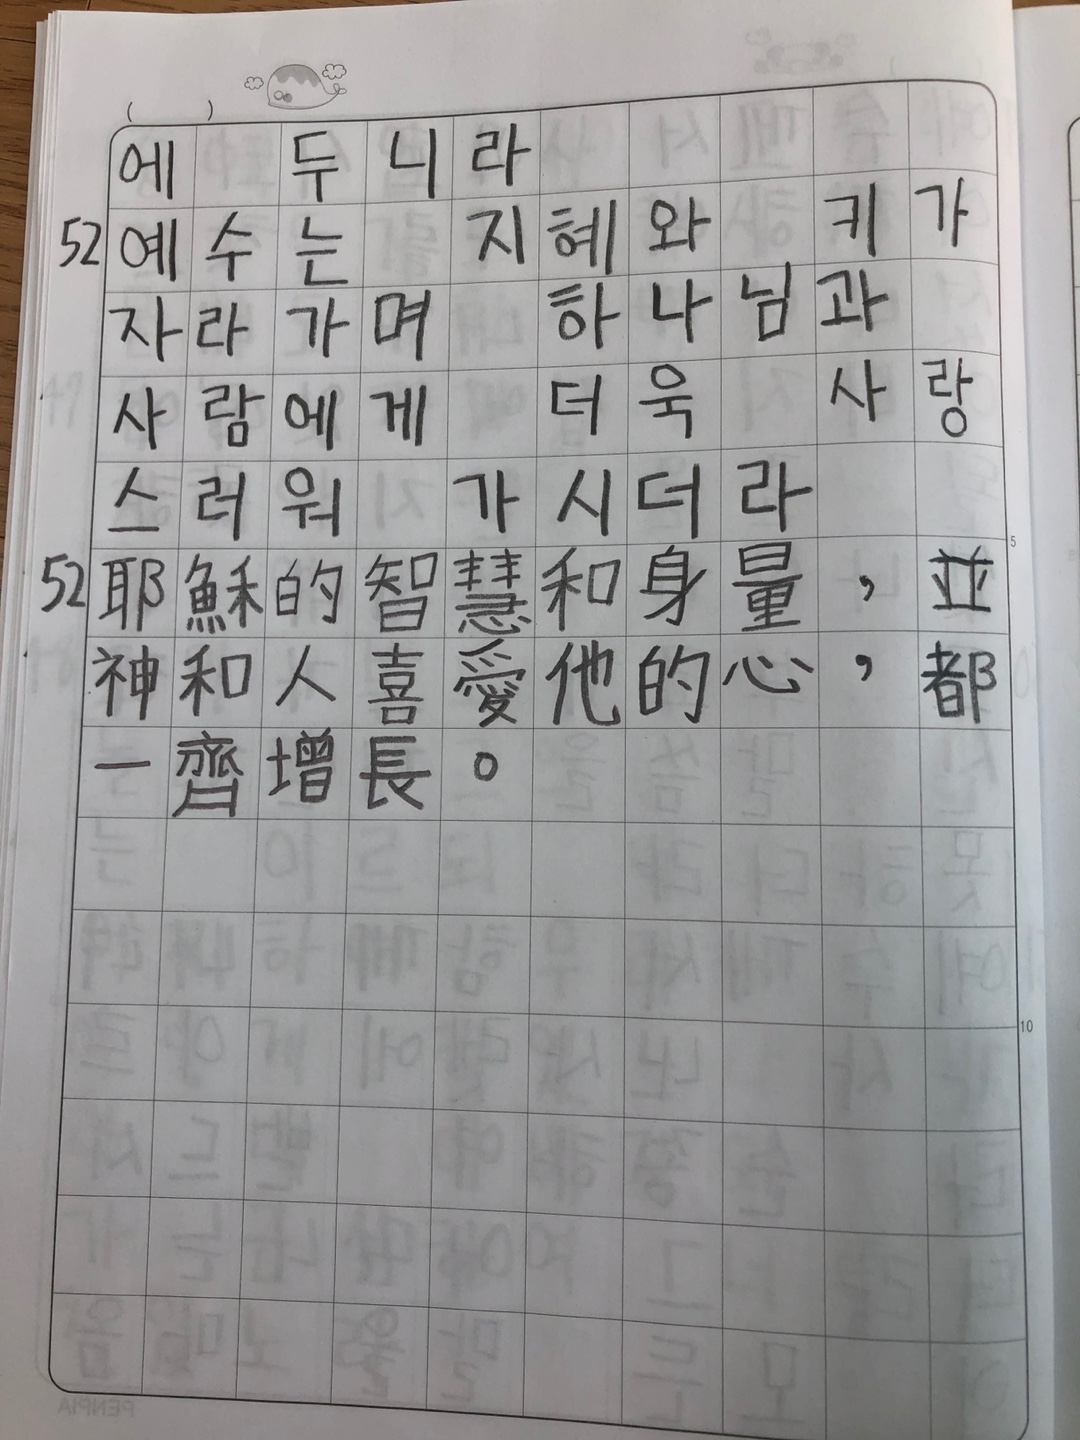 에 두니라
52 예수는 지혜와 키가
자라가며 하나님과
사람에게 더욱 사랑
스러워 가시더라
5
52 耶穌的智慧和身量，並
神和人喜愛他的心，都
一齊增長。
10